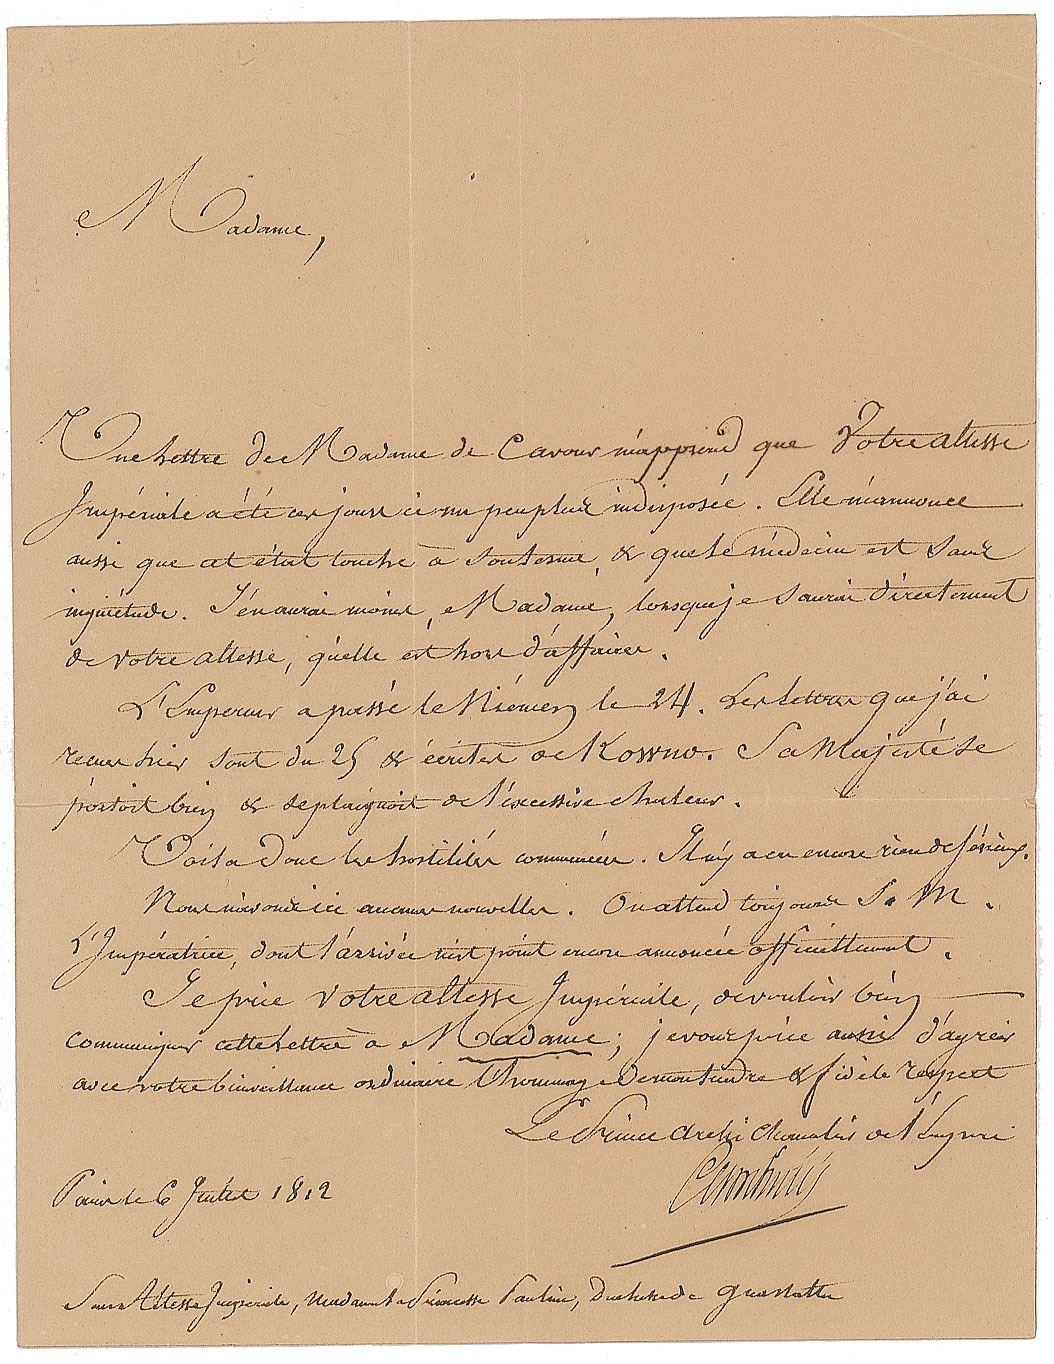 Madame,
Une Lettre de Madame de Cavour m'apprend que Votre altesse
Impériale a été ces jours ci un peu plus indisposée. Elle m'annonce
aussi que cet état touche à son terme, & que le médecin est sans
inquiétude. J'en aurai moins, Madame, lorsque je saurai directement
de votre altesse, qu'elle est hors d'affaires.
L'Empereur a passé le Niémen le 24. Les lettres que j'ai
recues hier sont du 25 & écrites de Kowno. Sa Majesté se
portoit bien & se plaignoit de l'excessive chaleur.
Voila donc les hostilités commencées. Il n'y a eu encore rien de sérieux.
Nous n'avons ici aucunes nouvelles. On attend toujours S. M.
L'Impératrice, dont l'arrivée n'est point encore annoncée officiellement.
Je prie Votre altesse Impériale, de vouloir bien
communiquer cette Lettre à Madame; je vous prie aussi d'agréer
avec votre bienveillance ordinaire l'hommage de mon tendre & fidèle respect
Le Prince archi chancelier de l'Empire
Cambacérès
Paris le 6 Juillet 1812
Son Altesse Impériale, Madame la Princesse Pauline, Duchesse de Guastalla